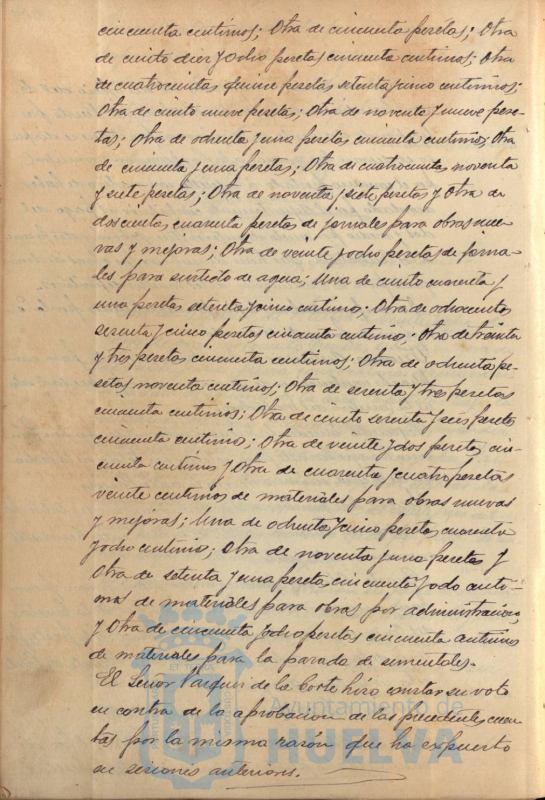 cincuenta centimos; Otra de cincuenta pesetas; Otra
de ciento diez y ocho pesetas cincuenta centimos; Otra
de cuatrocientas quince pesetas setenta y cinco centimos;
Otra de ciento nueve pesetas; Otra de noventa y nueve pese-
tas; Otra de ochenta y una pesetas cincuenta centimos; Otra
de cincuenta y una pesetas; Otra de cuatrocientas noventa
y siete pesetas; Otra de noventa y siete pesetas y Otra de
doscientas cuarenta pesetas de jornales para obras nue-
vas y mejoras; Otra de veinte y ocho pesetas de jorna-
les para surtido de agua; Una de ciento cuarenta y
una pesetas setenta y cinco centimos; Otra de ochocientas
y cinco pesetas cincuenta centimos; Otra de treinta
y tres pesetas cincuenta centimos; Otra de ochenta pe-
setas noventa centimos; Otra de y tres pesetas
cincuenta centimos; Otra de ciento y seis pesetas
cincuenta centimos; Otra de veinte y dos pesetas cin-
cuenta centimos y Otra de cuarenta y cuatro pesetas
veinte centimos de materiales para obras nuevas
y mejoras; Una de ochenta y cinco pesetas cuarenta
y ocho centimos; Otra de noventa y una pesetas y
Otra de setenta y una pesetas cincuenta y ocho centi-
mos de materiales para obras por administracion,
y Otra de cincuenta y ocho pesetas cincuenta centimos
de materiales para la parada de sementales.
El Señor Vazquez de la Corte hizo constar su voto
en contra de la aprobacion de las precedentes cuen-
tas por la misma razón que ha expuesto
en sesiones anteriores.
Ayuntamiento de
HUELVA